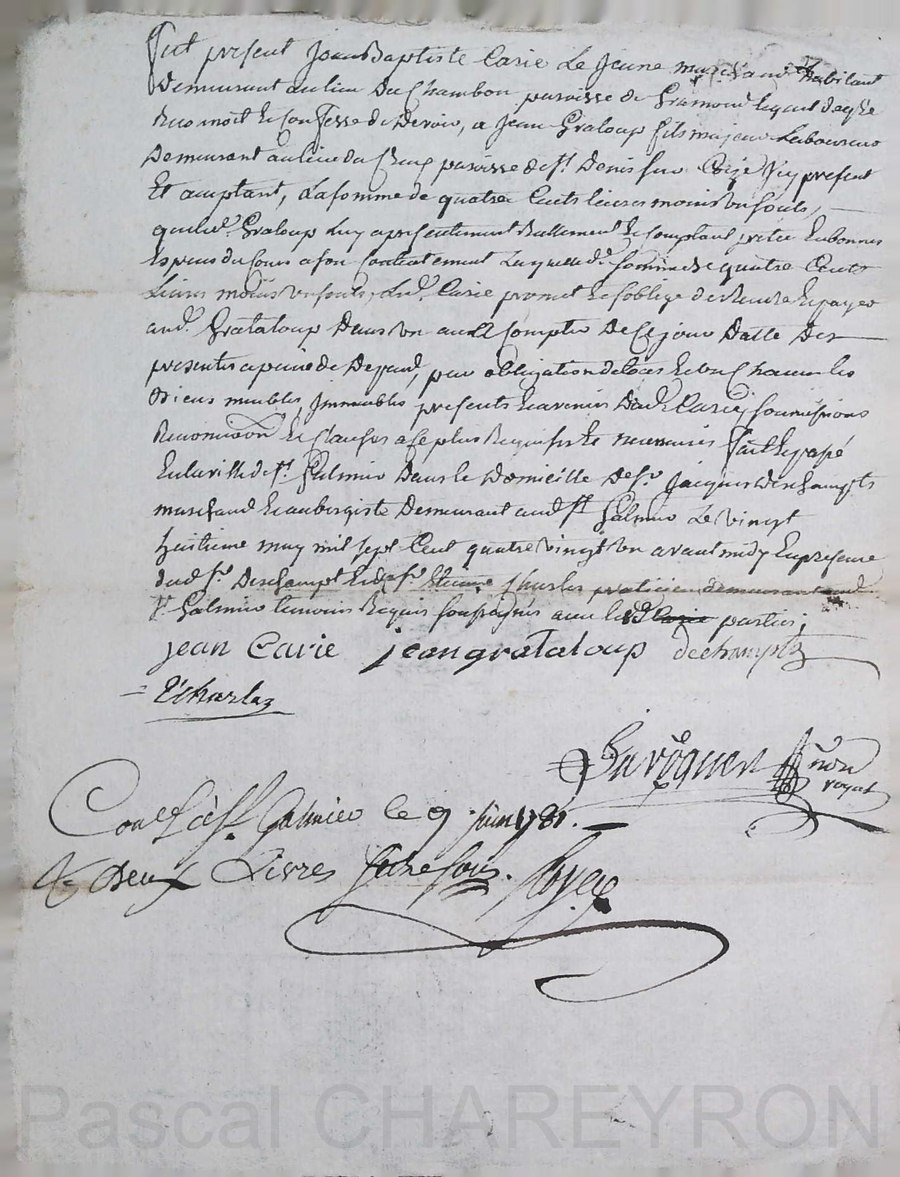 fut present Jean Baptiste Carie le jeune marchand habitant
Demeurant au lieu du Chambon paroisse de Gramond lequel de gre
Reconoit et Confesse de devoir, a Jean Grataloup fils majeur Laboureur
Demeurant au lieu du paroisse de st. Denis sur Coize Icy present
Et aceptant, La somme de quatre Cents livres moins un souls,
que led. Grataloup luy a presentement Reellement et comptant prete En bonnes
Especes du Cours a son Contentement Laquelle d. somme de quatre Cents
Livres moins un souls, led. Carie promet et s'oblige de Rendre Et payer
aud. Grataloup Dans un an a Compter De Ce jour Datte Des
presentes a peine de Depand, par obligation de tous Et un Chacun les
Biens meubles, Immeubles presents Et avenir Dud. Carie, soumissions
Renonciation Et Clauses a ce plus Requises Et necessaires fait Et passé
En la ville de st. Galmier Dans le Domicille De sr. Jacques Deschampts
marchand Et aubergiste Demeurant aud. st. Galmier Le vingt
huitieme may mil sept Cent quatre vingt un avant midy En presence
dud. sr. Deschampt Et de sr. Etienne Charles praticien demeurant aud.
st. Galmier temoins Requis soussignés avec les parties,
jean Carie jean grataloup dechampts
E charlas
non
royal
Conlé à st. Galmier le 9 juin 1781.
Re deux Livres seize sous.
Pascal CHAREYRON